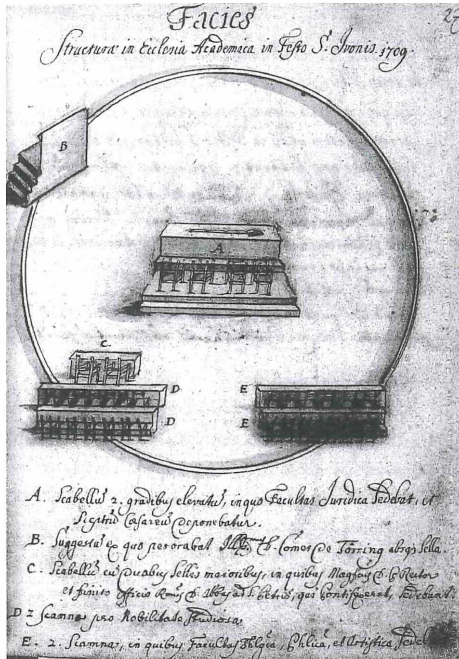 27
Facies
Structuræ in Ecclesia Academica in Festo S. Ivonis. 1709.
B
A
C.
D
E
D
E
A. Scabellũ 2. gradibus elevatũ, in quo Facultas Juridica sedebat, et
Sceptrũ Cæsareũ deponebatur.
B. Suggestũ ex quo perorabat D. Comes de Törring absq̃ sella.
C. Scabellũ cũ duabus sellis maioribus, in quibus D. Rector
et finito officio D. Abbas ad S. Petrũ, sedebant.
D 2 scamna pro Nobilitate studiosa.
E. 2. scamna, in quibus Facultas et Artistica